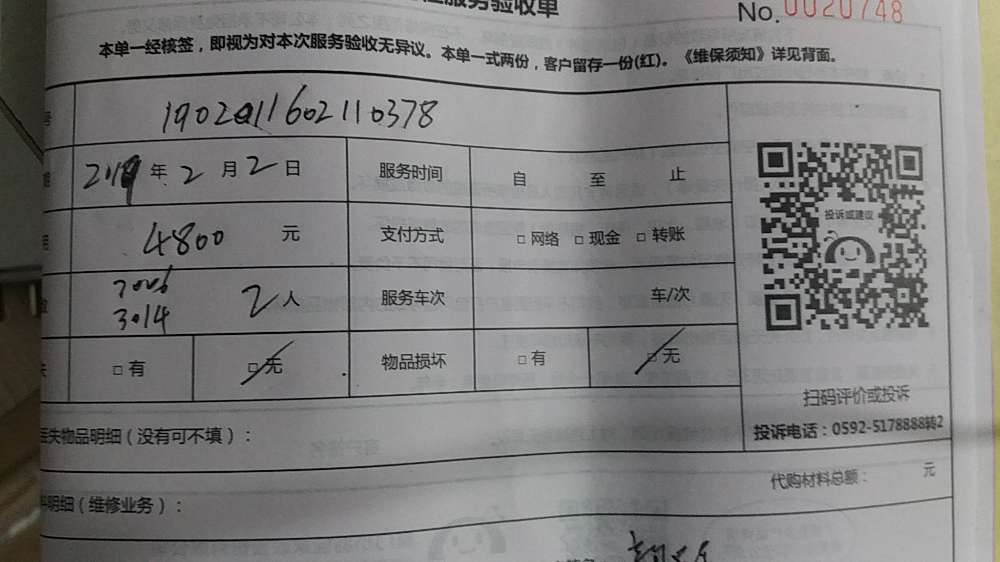 服务验收单
No. 0020748
本单一经核签，即视为对本次服务验收无异议。本单一式两份，客户留存一份(红)。《维保须知》详见背面。
号 1902011602110378
2019年2月2日 服务时间 自 至 止
4800 元 支付方式 □网络 □现金 □转账
3014 2人 服务车次 车/次
□有 □无 物品损坏 □有 □无
投诉或建议
扫码评价或投诉
失物品明细（没有可不填）： 投诉电话：0592-5178888转2
代购材料总额： 元
明细（维修业务）：